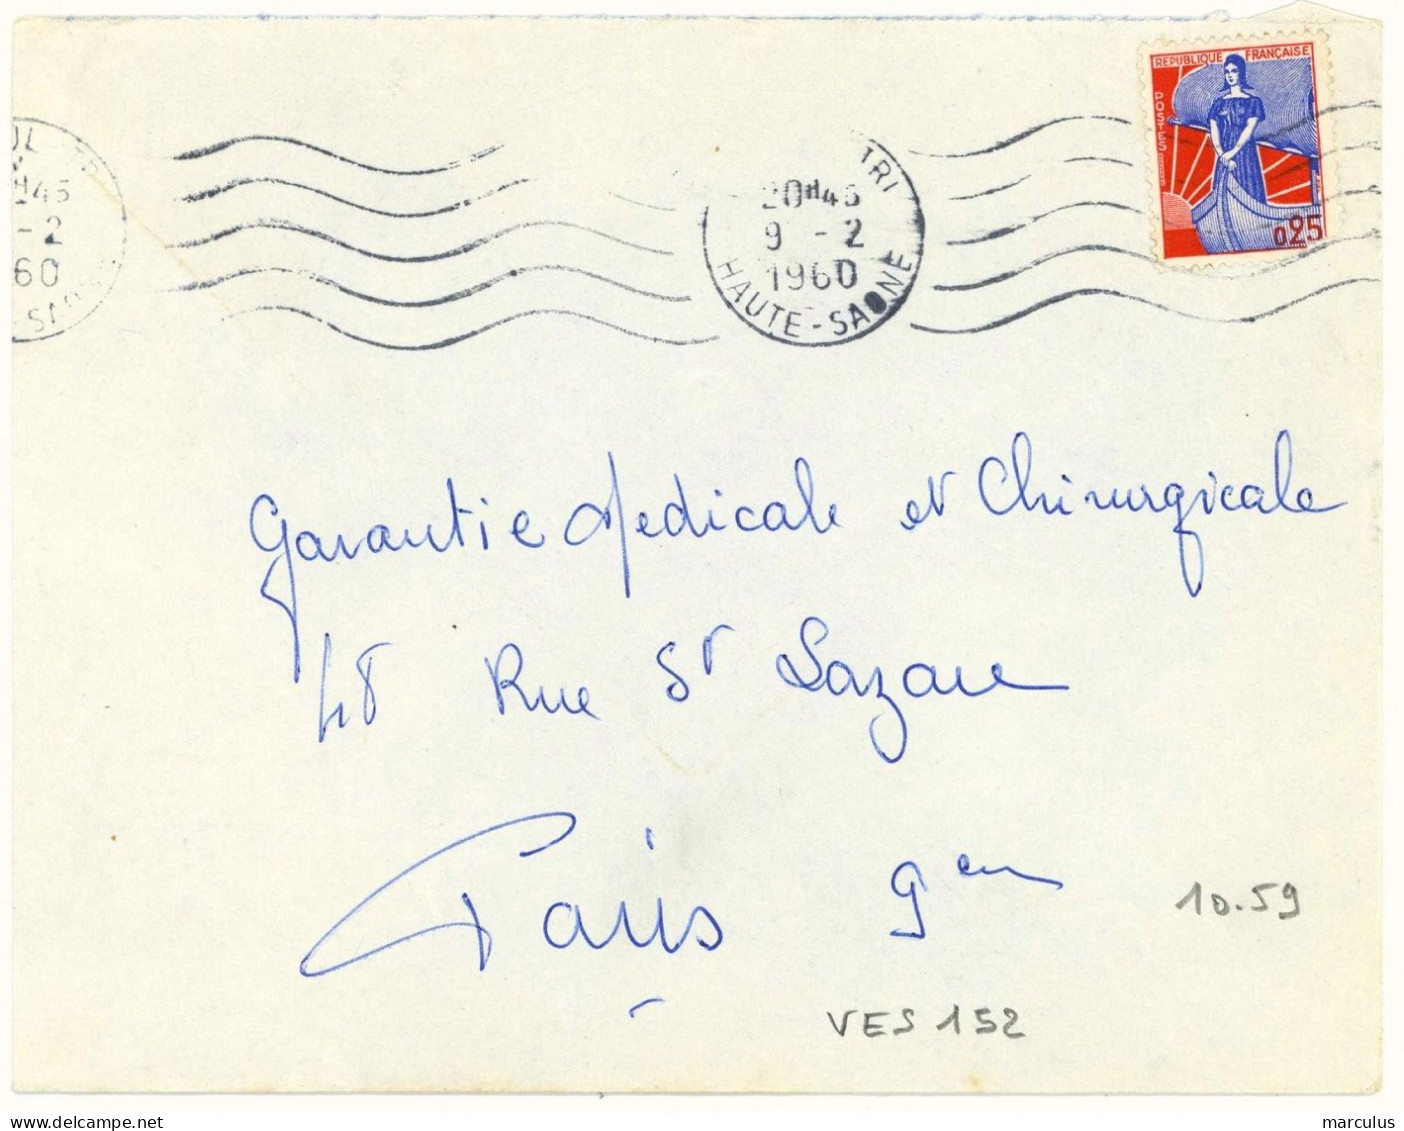 RÉPUBLIQUE FRANÇAISE
POSTES
0,25
TRI
20H45
9 - 2
1960
HAUTE-SAONE
H45
- 2
60
Garantie Medicale et Chirurgicale
48 Rue St Lazare
Paris 9em
10.59
VES 152
marculus